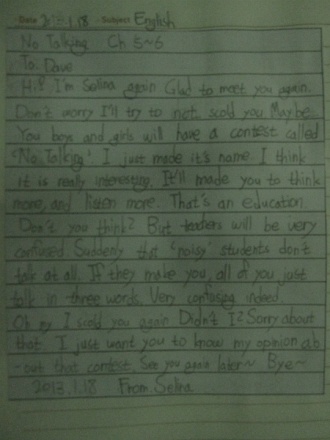 Date 2013.1.18 Subject English
No Talking Ch 5~6
To. Dave
Hi! I'm Selina again. Glad to meet you again.
Don't worry I'll try to not scold you Maybe.
You boys and girls will have a contest called
'No Talking'. I just made it's name. I think
it is really interesting. It'll made you to think
more, and listen more. That's an education.
Don't you think? But teachers will be very
confused. Suddenly that 'noisy' students don't
talk at all. If they make you, all of you just
talk in three words. Very confusing indeed.
Oh my I scold you again Didn't I? Sorry about
that. I just want you to know my opinion ab
-out that contest. See you again later~ Bye~
2013.1.18 From. Selina